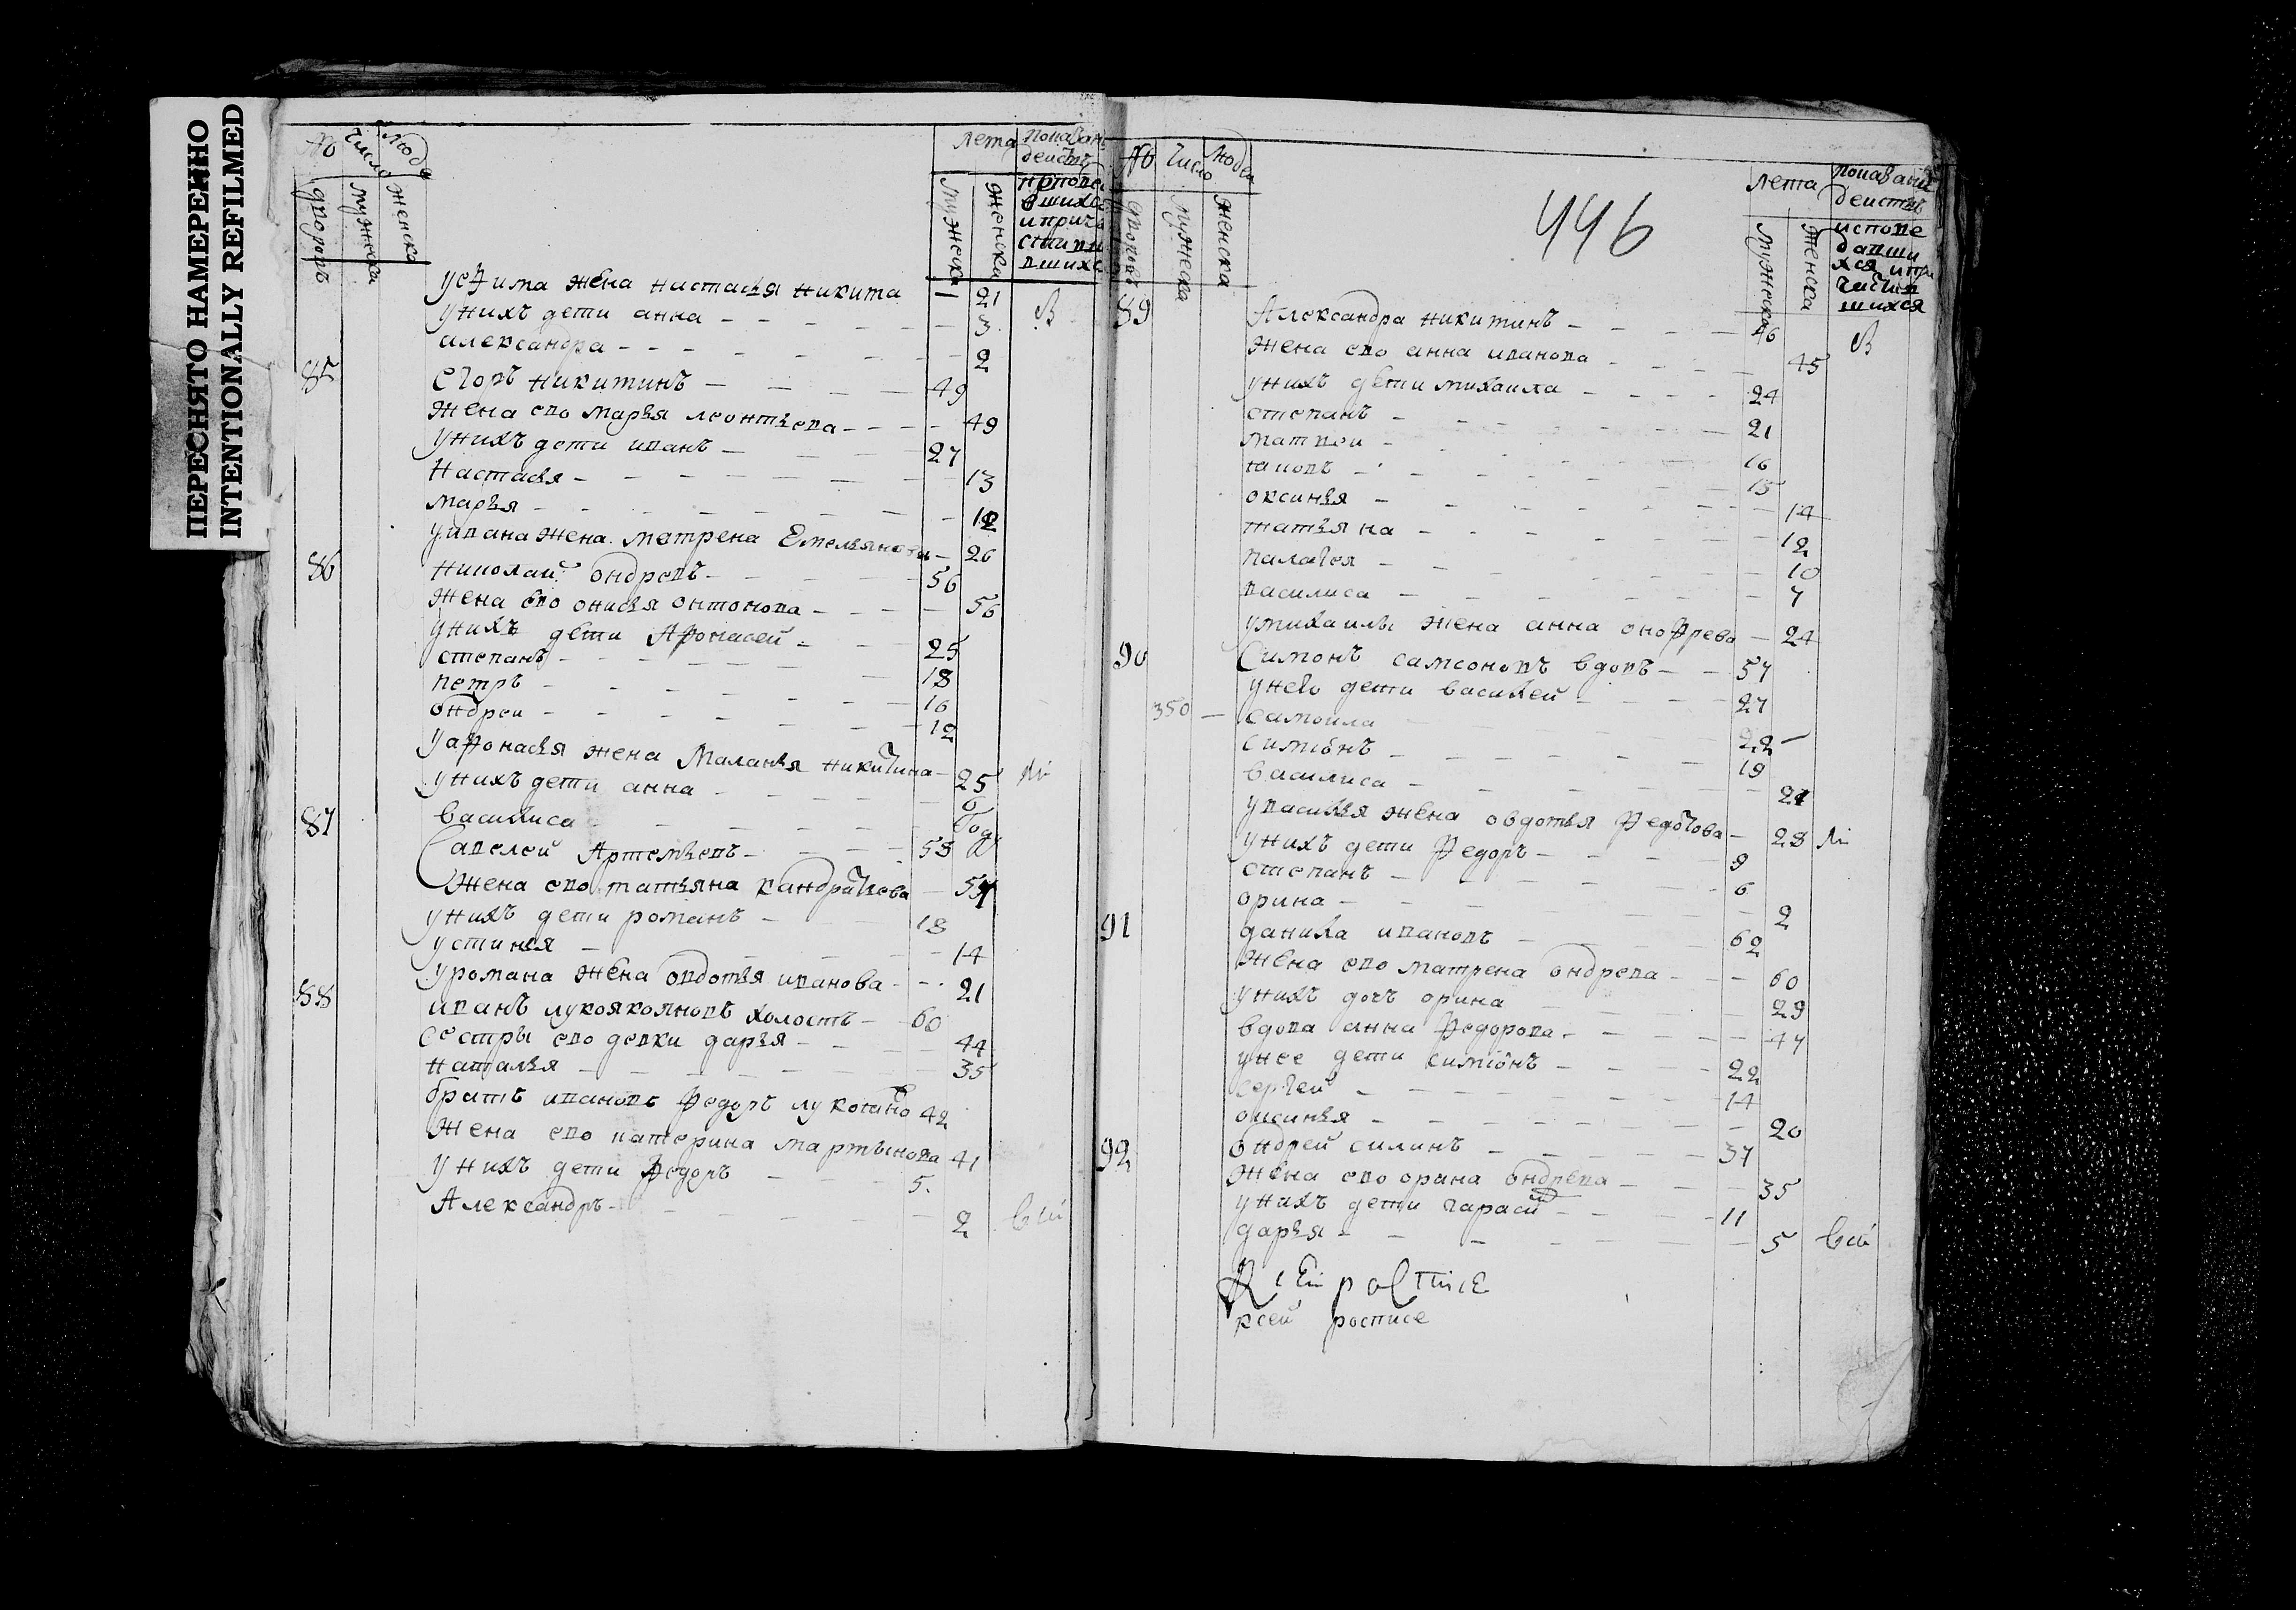 ПЕРЕСНЯТО НАМЕРЕННО
INTENTIONALLY REFILMED
№ число людей
дворовъ мужеска женска
Лета показан
деиств
мужеска женска
исповеда
вшихся
и прича
стивши
вшихс
уефима жена настасья никита 21
унихъ дети анна 3
александра 2
85 Егоръ никитинъ 49
жена ево марья леонтьева 49
унихъ дети иванъ 27
Настасья 13
марья 12
уивана жена матрена Емельянова 26
86 николай ондревъ 56
жена ево онисья онтонова 56
унихъ дети Афонасей 25
степанъ 18
петръ 16
ондреи 12
уафонасья жена Маланья никитина 25
унихъ дети анна 6
василиса году
87 Савелей Артемьевъ 58
жена ево татьяна кандратьева
унихъ дети романъ 18
устинья 14
уромана жена овдотья иванова 21
88 иванъ холостъ 60
сестры ево девки дарья 44
наталья 35
братъ ивановъ федоръ 42
жена ево катерина мартынова 41
унихъ дети федоръ 5
Александръ 2
№ число людеи
дворовъ мужеска женска
446
лета показание
деиствъ
мужеска женска
испове
давши
хся и при
частив
шихся
89 Александра никитинъ 46
жена ево анна иванова 45
унихъ дети михаила 24
степанъ 21
матвеи 16
иаковъ 15
оксинья 14
татьяна 12
палагея 10
василиса 7
умихаилы жена анна онофрева 24
90 Симонъ самсоновъ вдовъ 57
унего дети василей 27
350 самоила 22
симионъ 19
василиса 21
увасилья жена овдотья федотова 28
унихъ дети федоръ 9
степанъ 6
орина 2
91 данила ивановъ 62
жена ево матрена ондрева 60
унихъ дочъ орина 29
вдова анна федорова 47
унее дети симионъ 22
сергей 14
оксинья 20
92 ондрей силинъ 37
жена ево орина ондрева 35
унихъ дети гарасим 11
дарья 5
ксей росписе